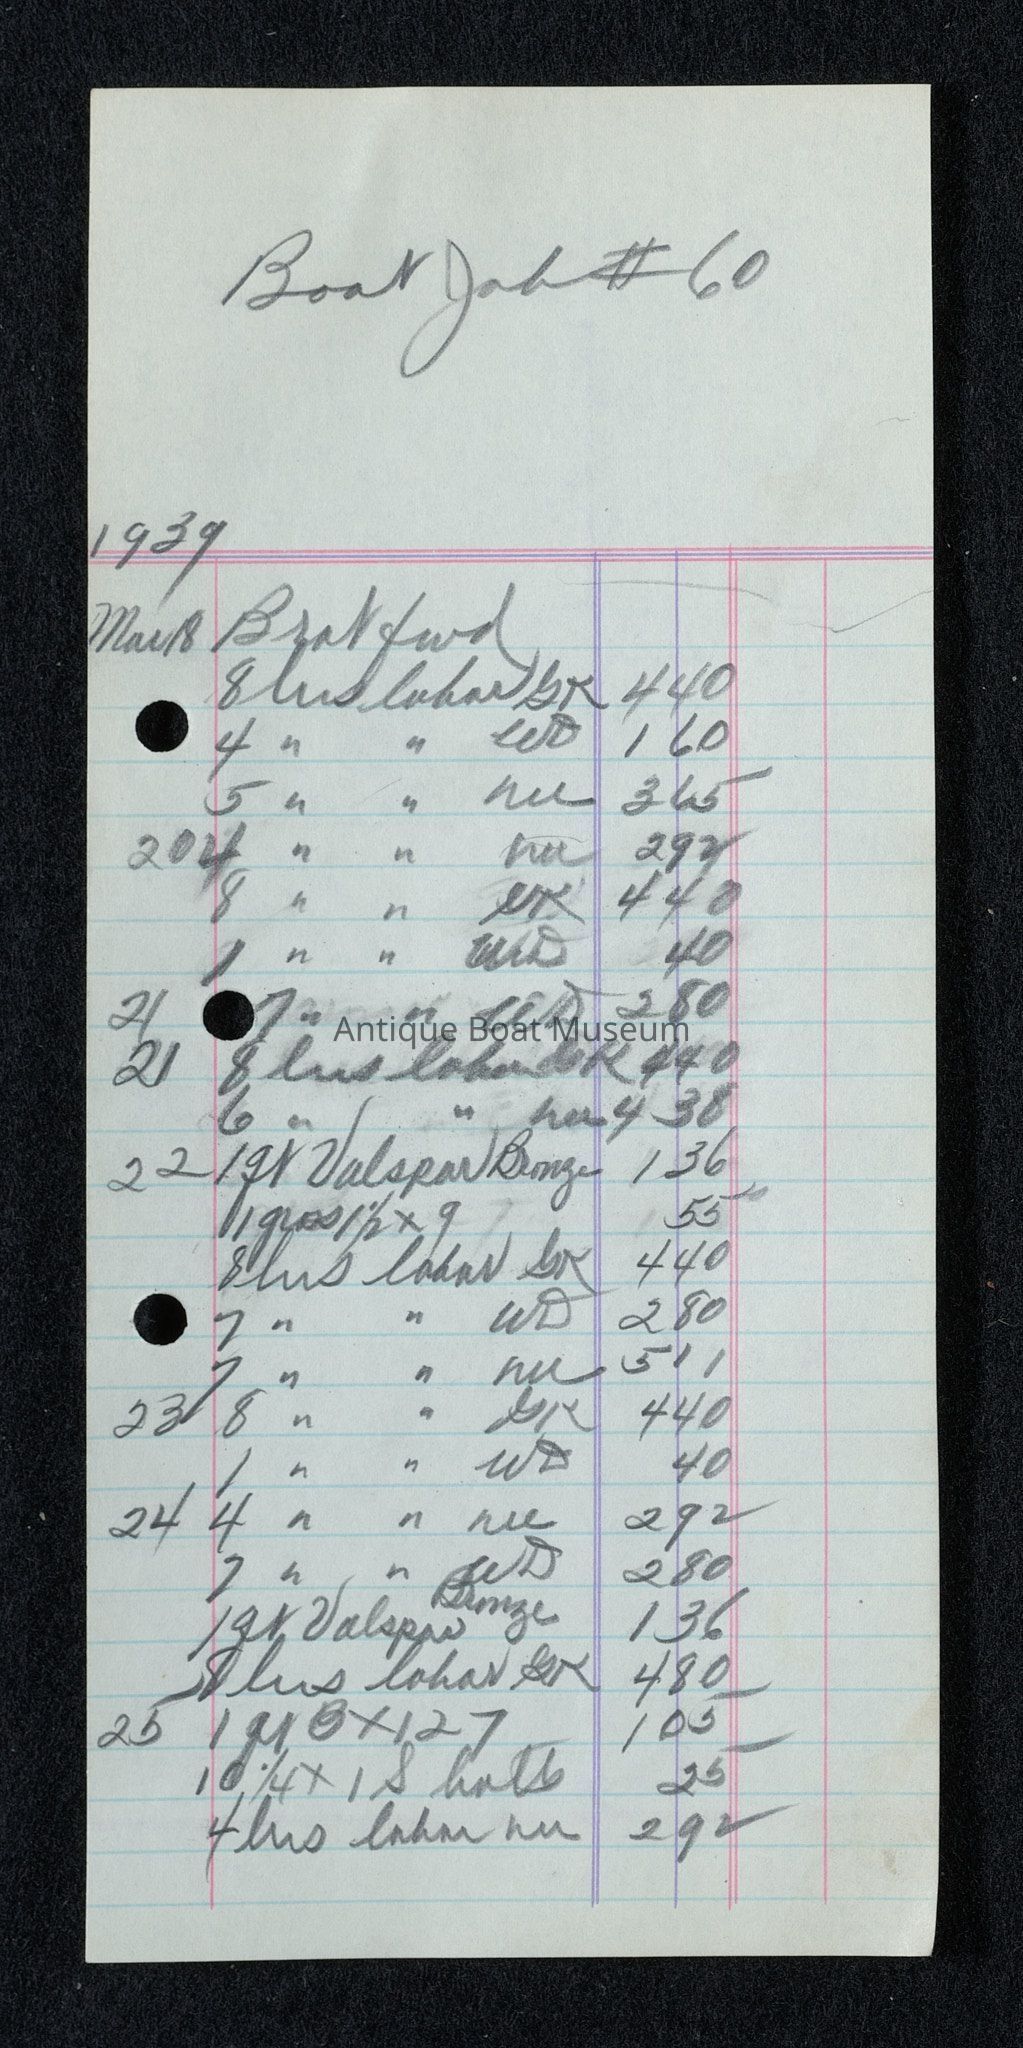 Boat Job # 60
1939
Mar 18 Brot fwd
8 hrs labor GK 440
4 " " WD 160
5 " " nu 365
20 4 " " nu 292
8 " " GK 440
1 " " WD 40
21 7 " " WD 280
Antique Boat Museum
21 8 hrs labor GK 440
6 " " nu 4 38
22 1 qt Valspar Bronze 136
1 gross 1 1/2 x 9 55
8 hrs labor GK 440
7 " " WD 280
7 " " nu 511
23 8 " " GK 440
1 " " WD 40
24 4 " " nu 292
7 " " WD 280
1 qt Valspar Bronze 136
8 hrs labor GK 480
25 1 3 x 12 7 105
10 1/4 x 1 S bolts 25
4 hrs labor nu 292